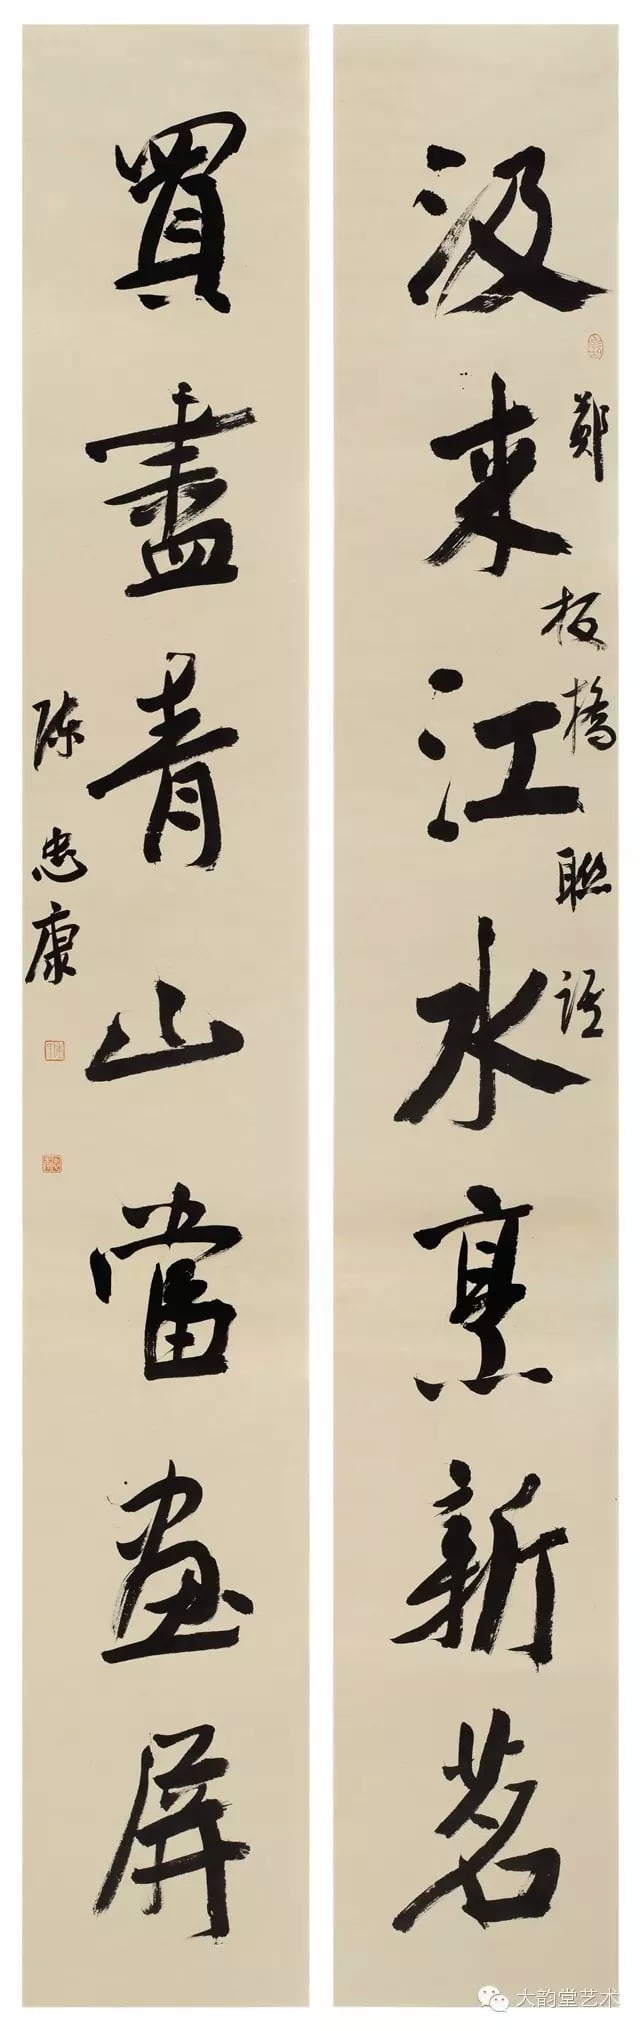 汲来江水烹新茗
鄭板橋聯語
買盡青山當畫屏
陈忠康
大韵堂艺术